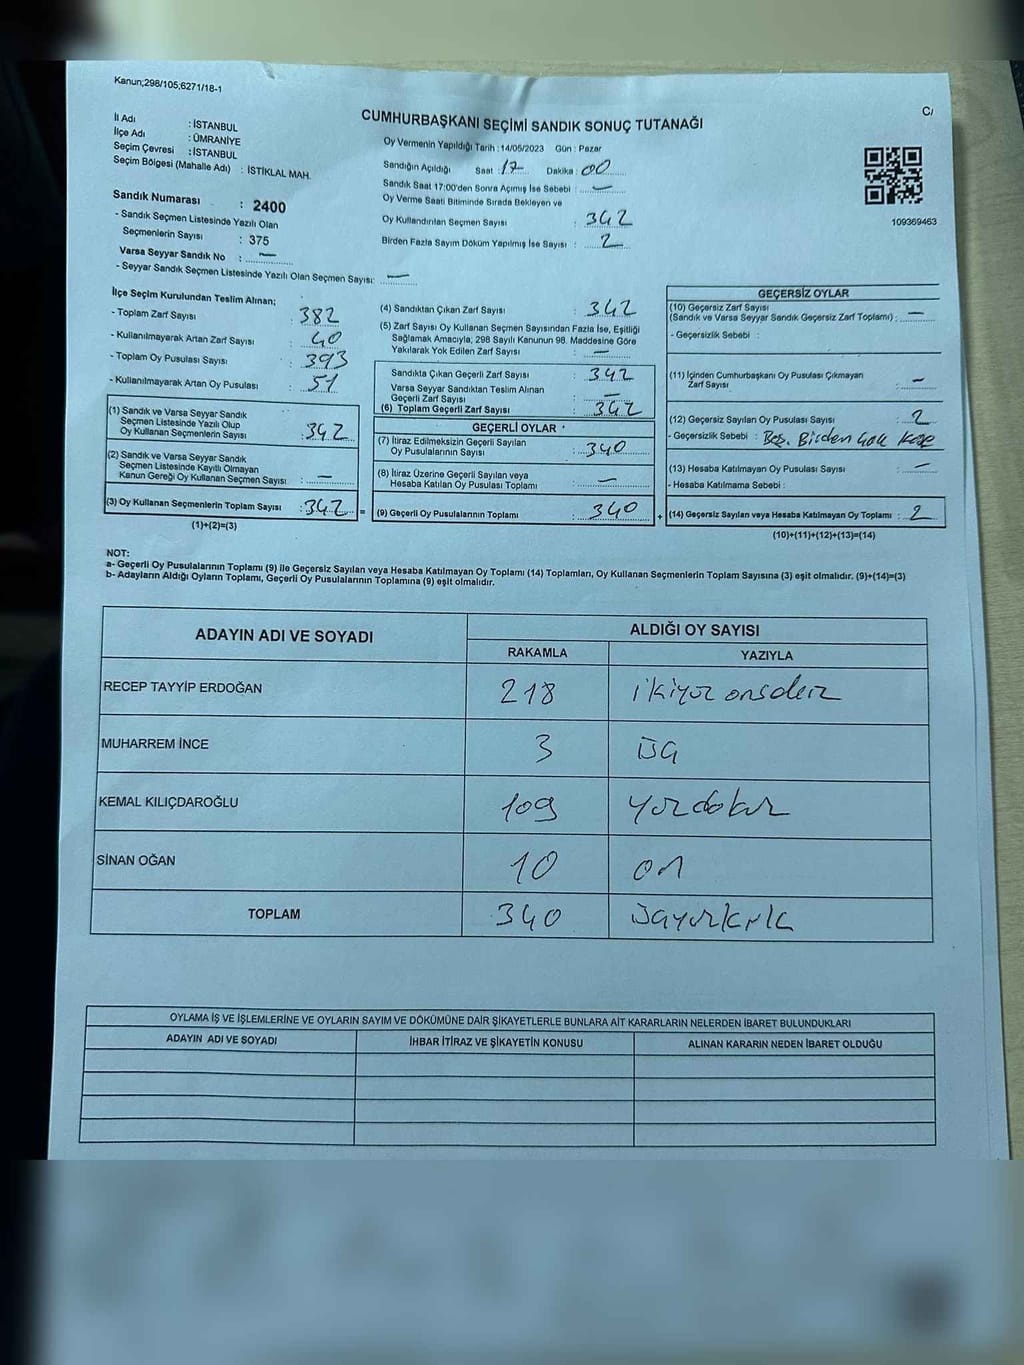 Kanun;298/105;6271/18-1
C/
CUMHURBAŞKANI SEÇİMİ SANDIK SONUÇ TUTANAĞI
İl Adı : İSTANBUL
İlçe Adı : ÜMRANİYE
Seçim Çevresi : İSTANBUL
Seçim Bölgesi (Mahalle Adı) : İSTİKLAL MAH.
Oy Vermenin Yapıldığı Tarih : 14/05/2023 Gün : Pazar
Sandığın Açıldığı Saat : 17 Dakika : 00
Sandık Saat 17:00'den Sonra Açımış İse Sebebi : —
Oy Verme Saati Bitiminde Sırada Bekleyen ve
Oy Kullandırılan Seçmen Sayısı : 342
Birden Fazla Sayım Döküm Yapılmış İse Sayısı : 2
109369463
Sandık Numarası : 2400
- Sandık Seçmen Listesinde Yazılı Olan
Seçmenlerin Sayısı : 375
Varsa Seyyar Sandık No : —
- Seyyar Sandık Seçmen Listesinde Yazılı Olan Seçmen Sayısı: —
İlçe Seçim Kurulundan Teslim Alınan;
- Toplam Zarf Sayısı : 382
- Kullanılmayarak Artan Zarf Sayısı : 40
- Toplam Oy Pusulası Sayısı : 393
- Kullanılmayarak Artan Oy Pusulası : 51
(1) Sandık ve Varsa Seyyar Sandık
Seçmen Listesinde Yazılı Olup
Oy Kullanan Seçmenlerin Sayısı : 342
(2) Sandık ve Varsa Seyyar Sandık
Seçmen Listesinde Kayıtlı Olmayan
Kanun Gereği Oy Kullanan Seçmen Sayısı : —
(3) Oy Kullanan Seçmenlerin Toplam Sayısı : 342 =
(1)+(2)=(3)
(4) Sandıktan Çıkan Zarf Sayısı : 342
(5) Zarf Sayısı Oy Kullanan Seçmen Sayısından Fazla İse, Eşitliği
Sağlamak Amacıyla; 298 Sayılı Kanunun 98. Maddesine Göre
Yakılarak Yok Edilen Zarf Sayısı : —
Sandıkta Çıkan Geçerli Zarf Sayısı : 342
Varsa Seyyar Sandıktan Teslim Alınan
Geçerli Zarf Sayısı : —
(6) Toplam Geçerli Zarf Sayısı : 342
GEÇERLİ OYLAR
(7) İtiraz Edilmeksizin Geçerli Sayılan
Oy Pusulalarının Sayısı : 340
(8) İtiraz Üzerine Geçerli Sayılan veya
Hesaba Katılan Oy Pusulası Toplamı : —
(9) Geçerli Oy Pusulalarının Toplamı : 340 +
GEÇERSİZ OYLAR
(10) Geçersiz Zarf Sayısı
(Sandık ve Varsa Seyyar Sandık Geçersiz Zarf Toplamı) : —
- Geçersizlik Sebebi :
(11) İçinden Cumhurbaşkanı Oy Pusulası Çıkmayan
Zarf Sayısı : —
(12) Geçersiz Sayılan Oy Pusulası Sayısı : 2
- Geçersizlik Sebebi : Birden
(13) Hesaba Katılmayan Oy Pusulası Sayısı : —
- Hesaba Katılmama Sebebi :
(14) Geçersiz Sayılan veya Hesaba Katılmayan Oy Toplamı : 2
(10)+(11)+(12)+(13)=(14)
NOT:
a- Geçerli Oy Pusulalarının Toplamı (9) ile Geçersiz Sayılan veya Hesaba Katılmayan Oy Toplamı (14) Toplamları, Oy Kullanan Seçmenlerin Toplam Sayısına (3) eşit olmalıdır. (9)+(14)=(3)
b- Adayların Aldığı Oyların Toplamı, Geçerli Oy Pusulalarının Toplamına (9) eşit olmalıdır.
ADAYIN ADI VE SOYADI ALDIĞI OY SAYISI
RAKAMLA YAZIYLA
RECEP TAYYİP ERDOĞAN 218 ikiyüz onsekiz
MUHARREM İNCE 3 üç
KEMAL KILIÇDAROĞLU 109 yüzdokuz
SİNAN OĞAN 10 on
TOPLAM 340 üçyüzkırk
OYLAMA İŞ VE İŞLEMLERİNE VE OYLARIN SAYIM VE DÖKÜMÜNE DAİR ŞİKAYETLERLE BUNLARA AİT KARARLARIN NELERDEN İBARET BULUNDUKLARI
ADAYIN ADI VE SOYADI İHBAR İTİRAZ VE ŞİKAYETİN KONUSU ALINAN KARARIN NEDEN İBARET OLDUĞU